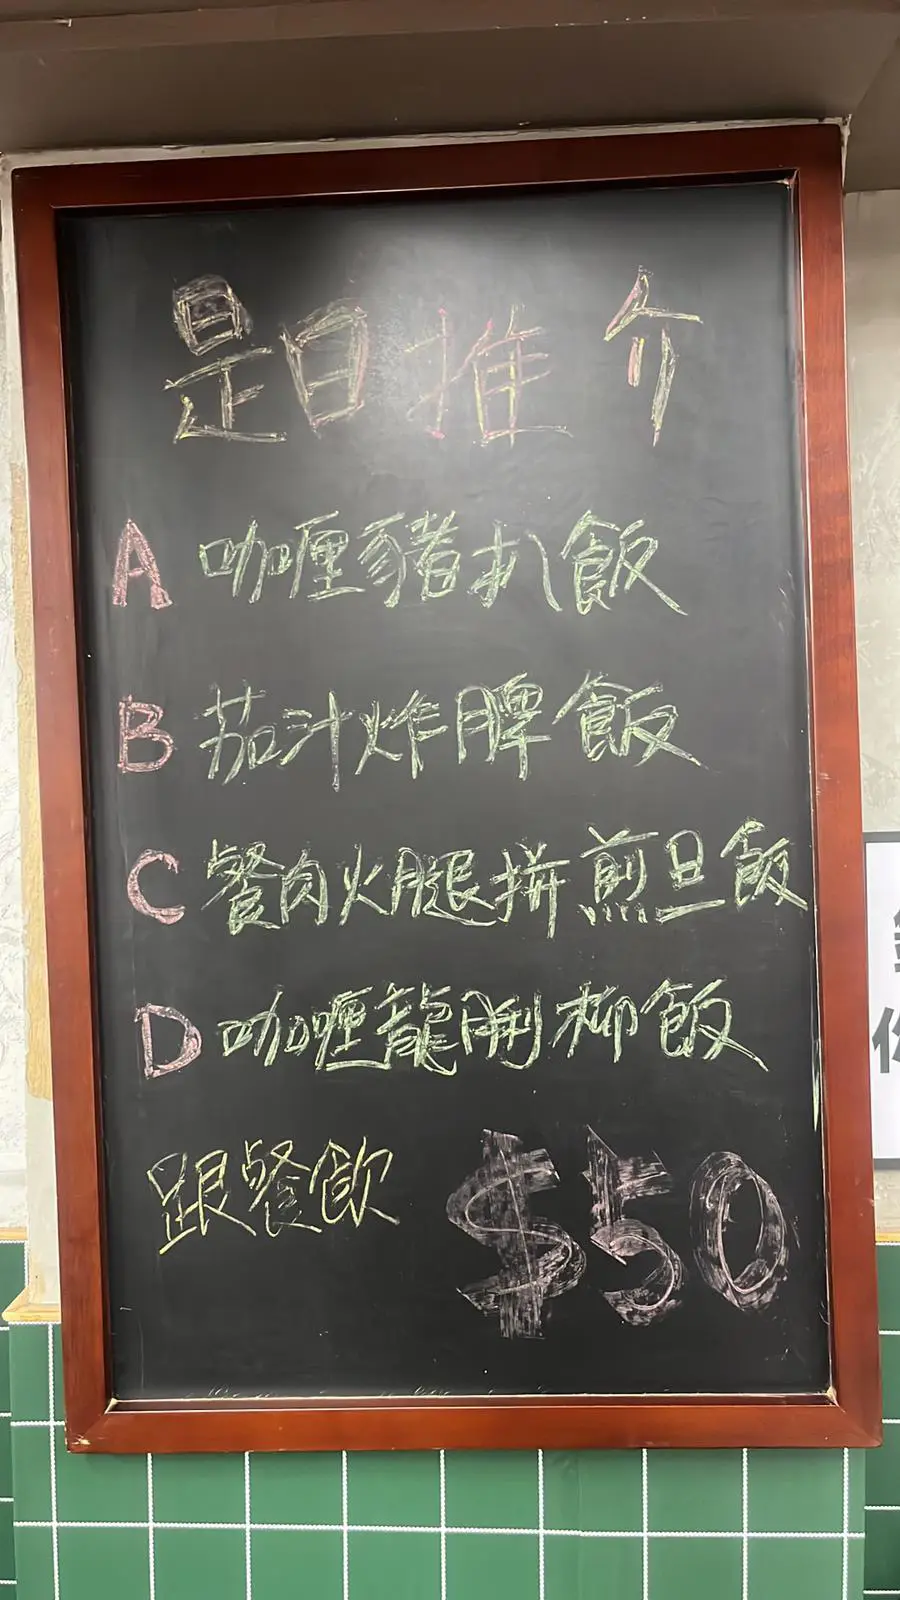 是日推介
A 咖喱豬扒飯
B 茄汁炸脾飯
C 餐肉火腿拼煎旦飯
D 咖喱龍脷柳飯
跟餐飲 $50